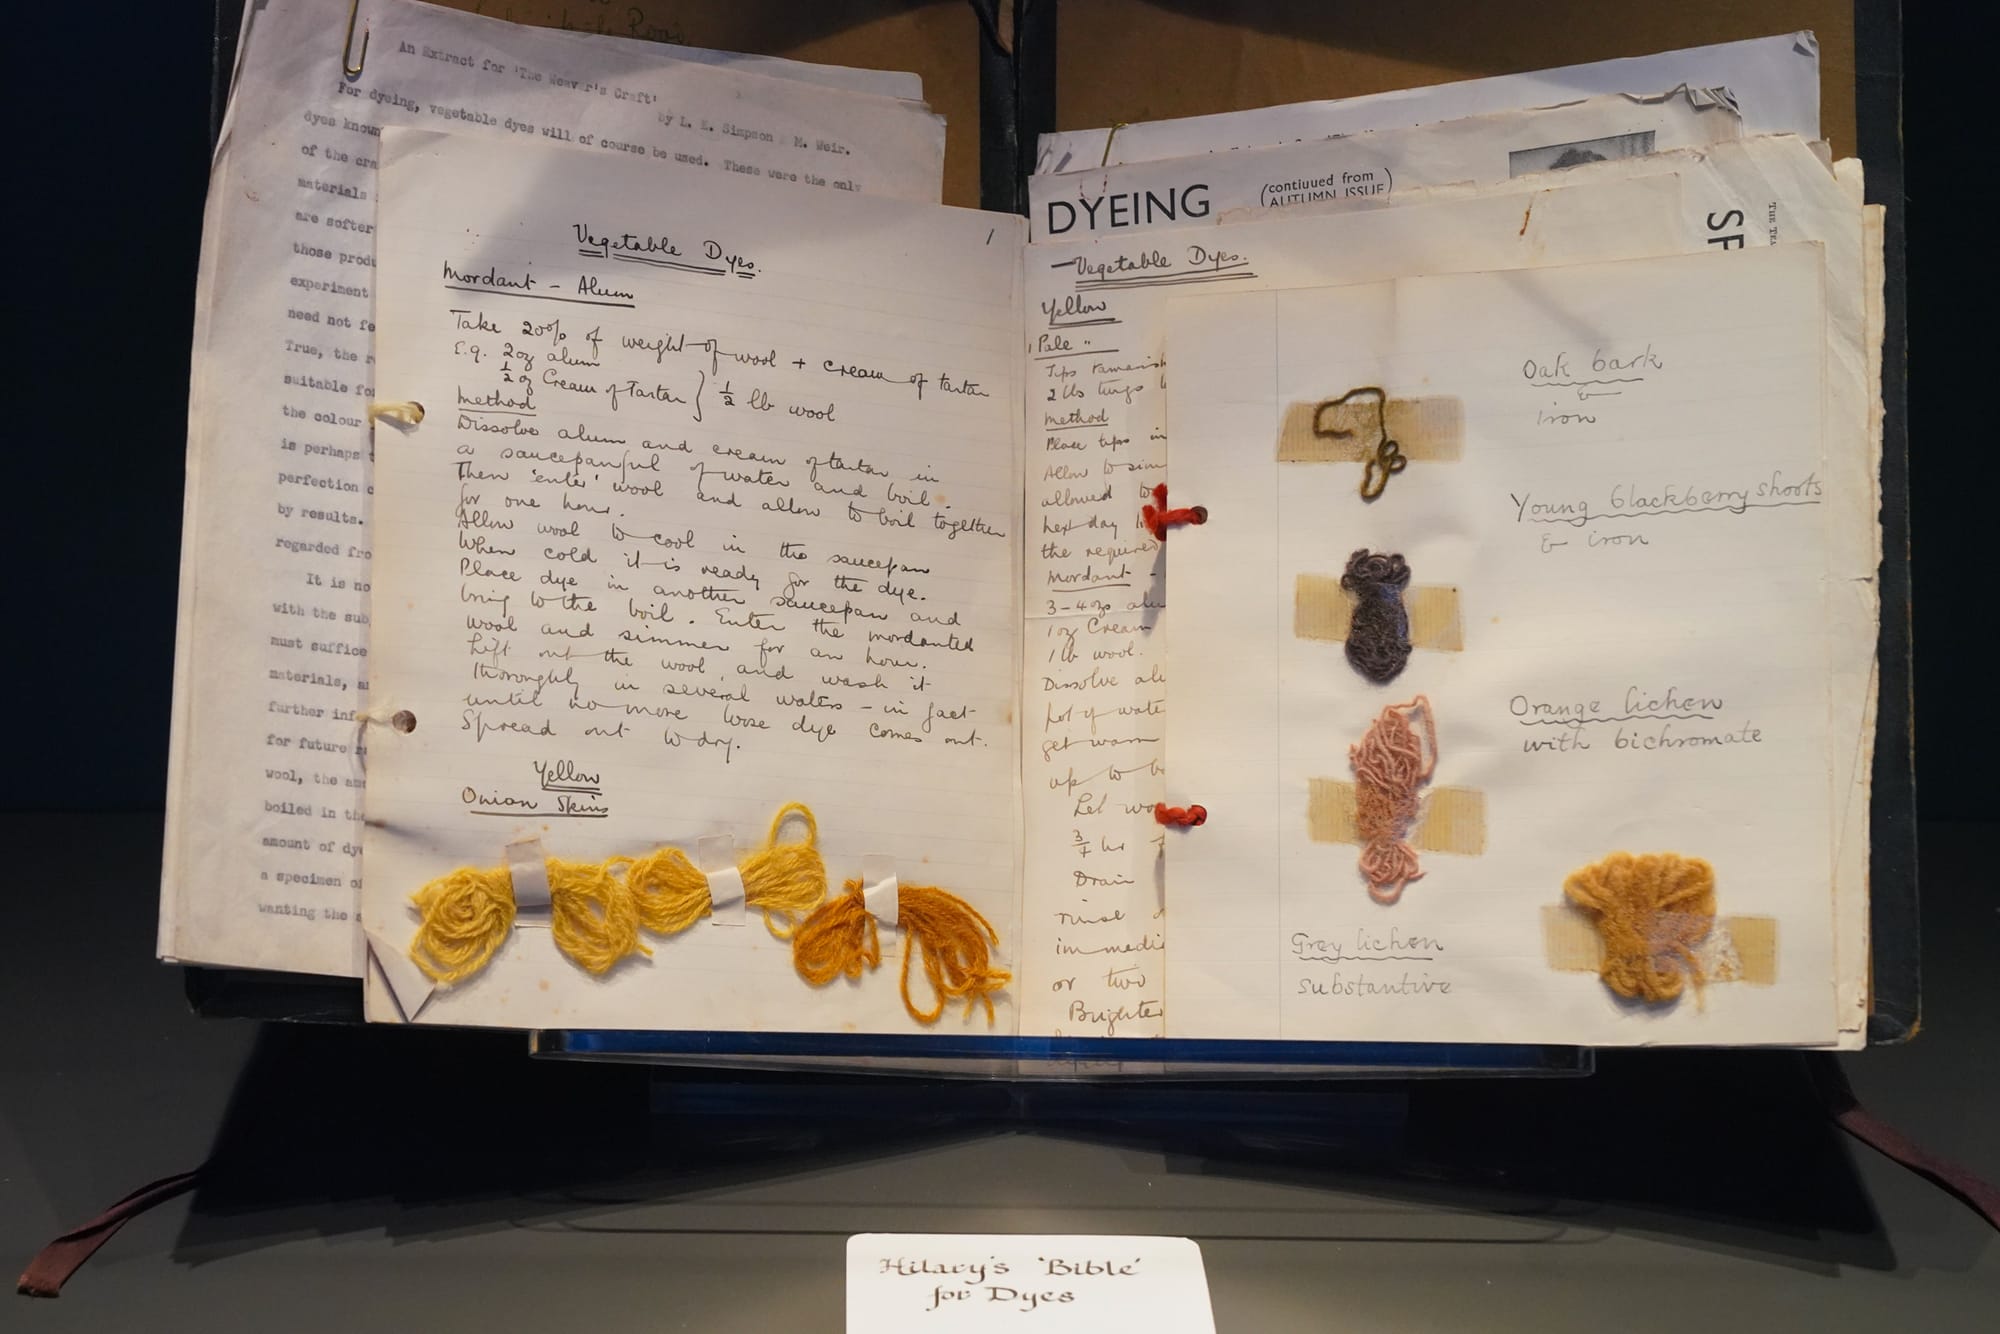 An Extract for 'The Weaver's Craft'
by L. E. Simpson M. Weir.
For dyeing, vegetable dyes will of course be used. These were the only
dyes known
of the cra
materials
are softer
those produ
experiment
need not fe
True, the r
suitable for
the colour
is perhaps
perfection
by results.
regarded fro
It is no
with the sub
must suffice
materials, a
further inf
for future
wool, the am
boiled in the
amount of dye
a specimen of
wanting the s
1
Vegetable Dyes.
Mordant - Alum
Take 20% of weight of wool + cream of tartar
E.g. 2oz alum
½ oz Cream of Tartar } ½ lb wool
Method
Dissolve alum and cream of tartar in
a saucepanful of water and boil.
Then 'enter' wool and allow to boil together
for one hour.
Allow wool to cool in the saucepan
When cold it is ready for the dye.
Place dye in another saucepan and
bring to the boil. Enter the mordanted
wool and simmer for an hour.
Lift out the wool, and wash it
thoroughly in several waters - in fact
until no more loose dye comes out.
Spread out to dry.
Yellow
Onion Skins
DYEING
(contiuued from
AUTUMN ISSUE)
SP
THE TEA
Vegetable Dyes.
Yellow
Pale "
Tips tamarisk
2 lbs twigs
Method
Place tips in
Allow to sim
allowed to
next day
the required
Mordant -
3-4ozs alu
1oz Cream
1 lb wool.
Dissolve alu
pot of wate
get warm
up to bo
Let wo
¾ hr
Drain
rinse
immedi
or two
Brighter
Oak bark
&
iron
Young blackberry shoots
& iron
Orange lichen
with bichromate
Grey lichen
substantive
Hilary's 'Bible'
for Dyes